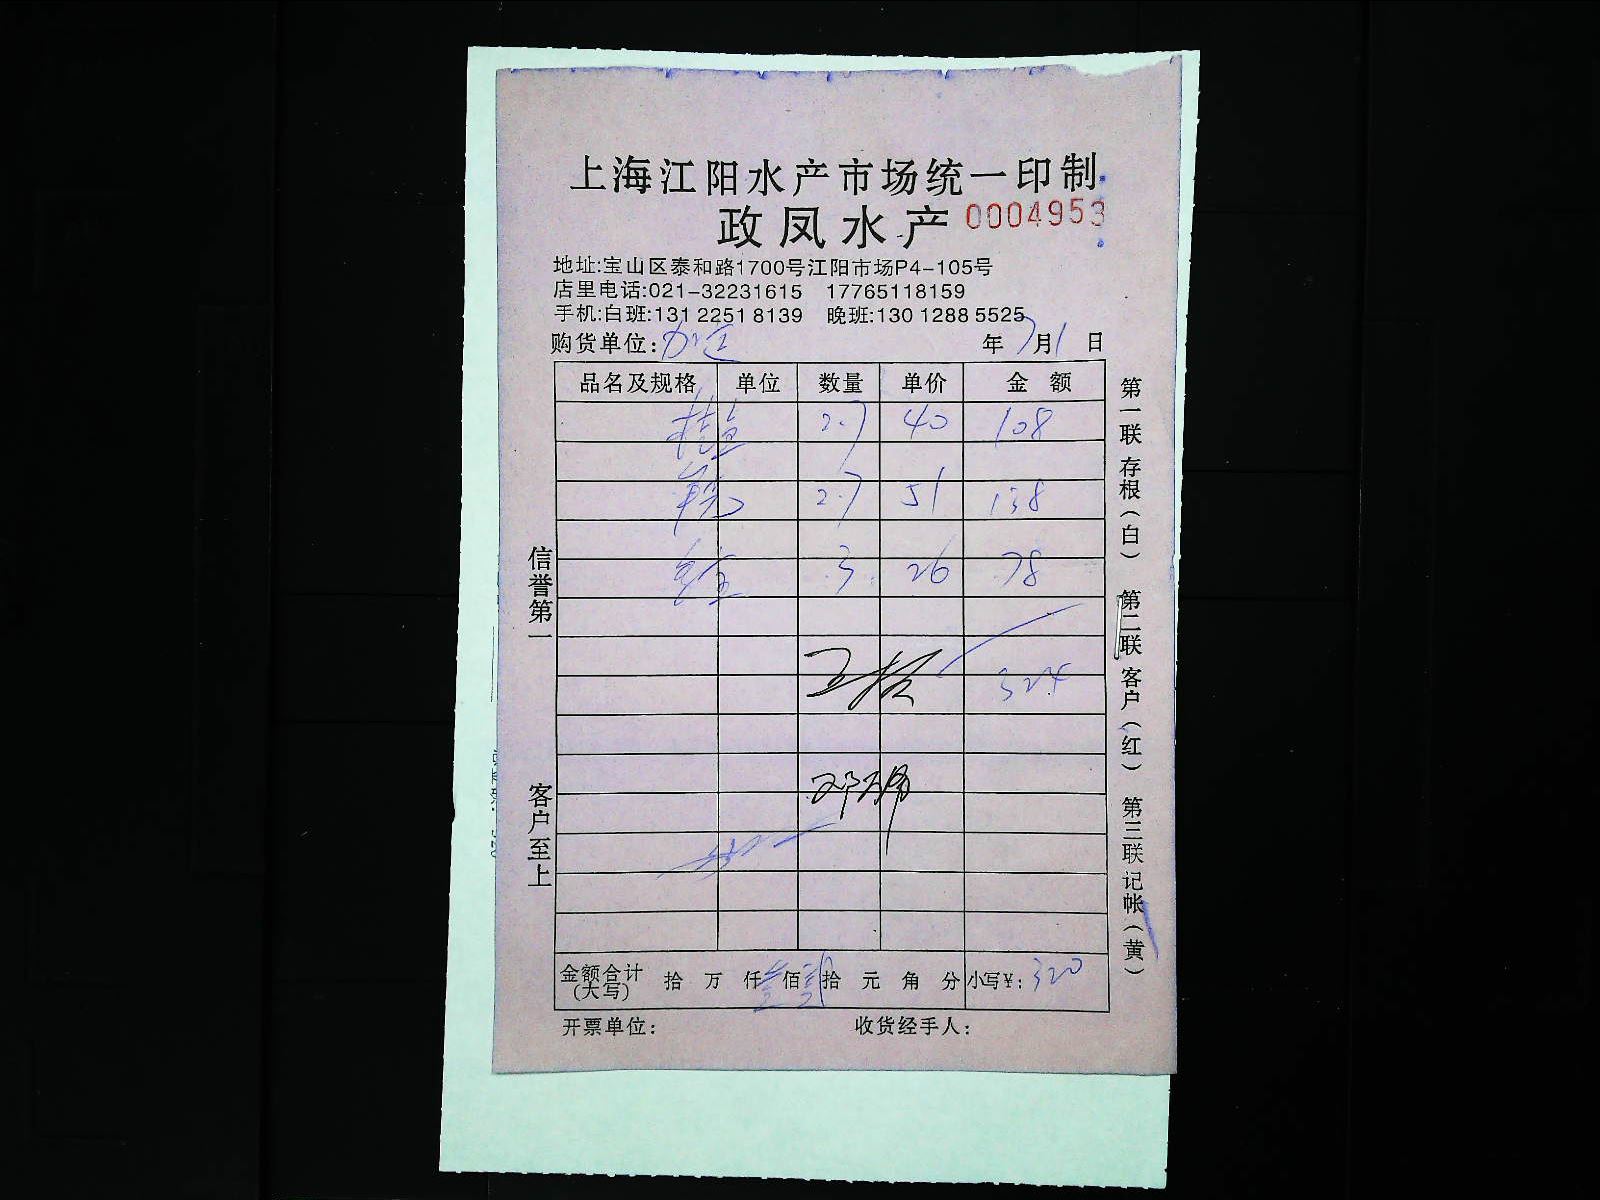 上海江阳水产市场统一印制
政凤水产 0004953
地址:宝山区泰和路1700号江阳市场P4-105号
店里电话:021-32231615 17765118159
手机:白班:131 2251 8139 晚班:130 1288 5525
购货单位: 年7月1日
品名及规格 单位 数量 单价 金额
2.7 40 108
2.7 51 138
3 26 78
324
金额合计(大写) 拾 万 仟叁佰贰拾 元 角 分 小写¥:320
开票单位: 收货经手人:
信誉第一 客户至上
第一联 存根(白) 第二联 客户(红) 第三联 记帐(黄)